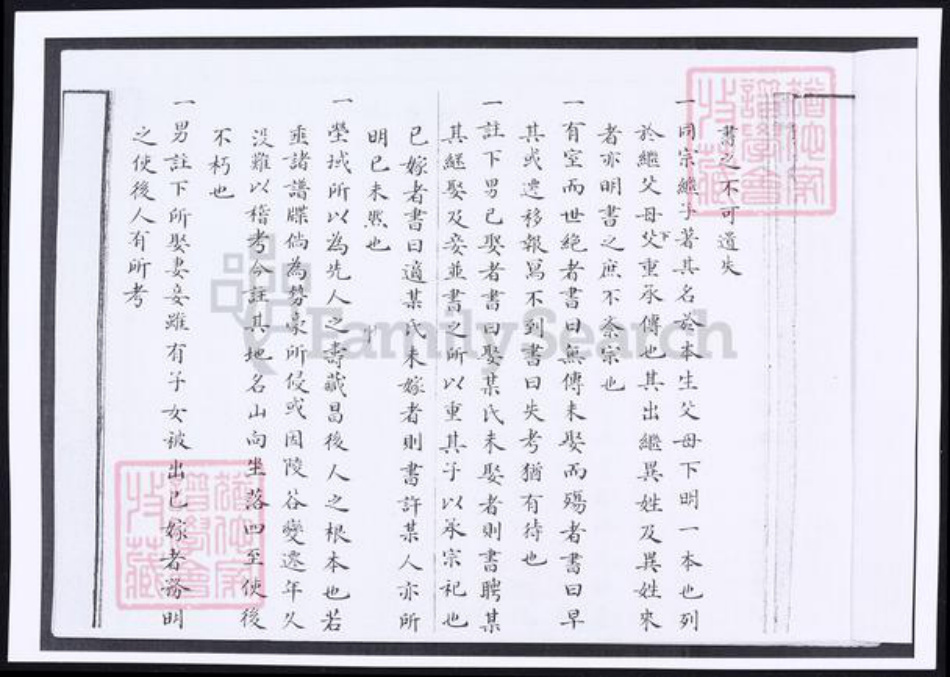 書之不可遺失
一同宗繼子著其名於本生父母下明一本也列
於繼父母父下重承傳也其出繼異姓及異姓來
者亦明書之庶不紊宗也
一有室而世絕者書曰無傳未娶而殤者書曰早
其或遷移報寫不到書曰失考猶有待也
一註下男已娶者書曰娶某氏未娶者則書聘某
其繼娶及妾並書之所以重其子以承宗祀也
已嫁者書曰適某氏未嫁者則書許某人亦所
明已未然也
一塋域所以為先人之壽藏昌後人之根本也若
乖諸譜牒倘為勢豪所侵或因陵谷變遷年久
沒難以稽考今註其地名山向坐落四至使後
不朽也
一男註下所娶妻妾雖有子女被出已嫁者務明
之使後人有所考
FamilySearch